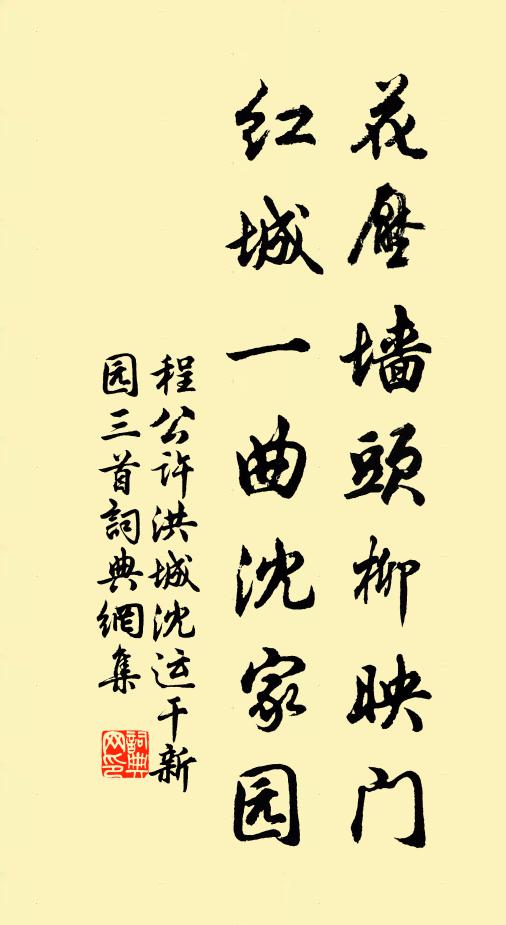 花壓墙頭柳映门
红城一曲沈家园
程公许洪城沈运干新
园三首詞典網集
詞典
网印